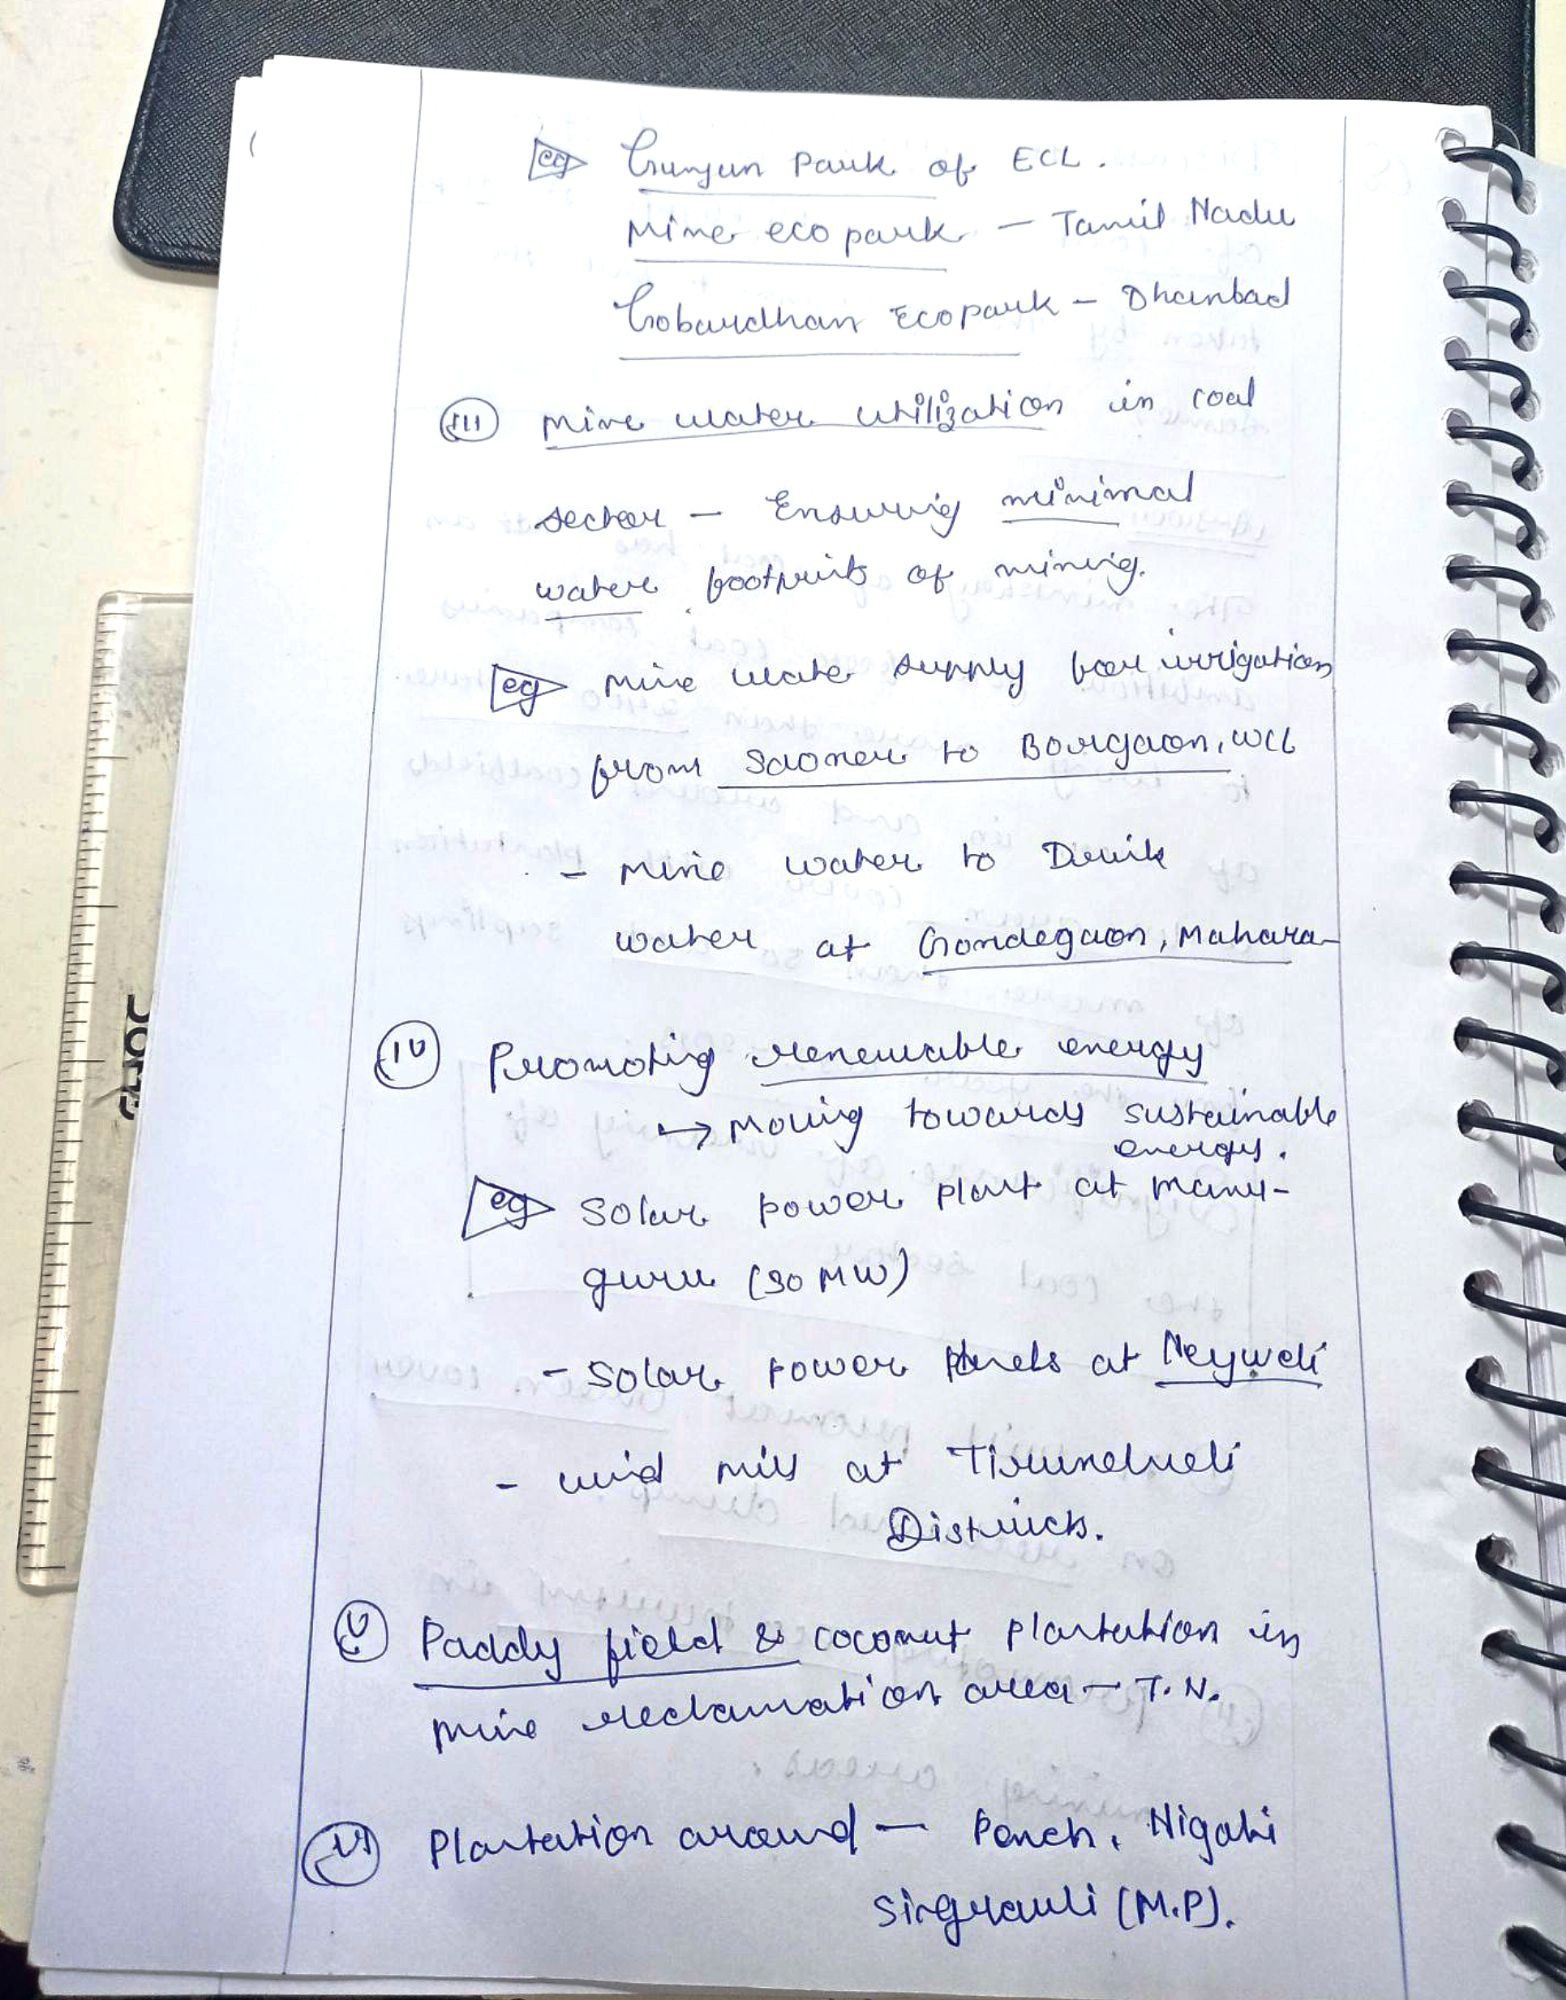 eg Gunjun Park of ECL.
Mine eco park - Tamil Nadu
Gobardhan Ecopark - Dhanbad
(iii) Mine water utilization in coal
sector - Ensuring minimal
water footprints of mining.
eg Mine water supply for irrigation
from Saoner to Borgaon, WCL
- Mine water to Drink
water at Gondegaon, Mahara-
(iv) Promoting renewable energy
→ Moving towards sustainable
energy.
eg Solar power plant at Many-
guru (30 MW)
- Solar power panels at Neyweli
- wind mill at Tirunelveli
District.
(v) Paddy field & coconut plantation in
mine reclamation area - T.N.
(vi) Plantation around - Pench, Nigahi
Singrauli (M.P).